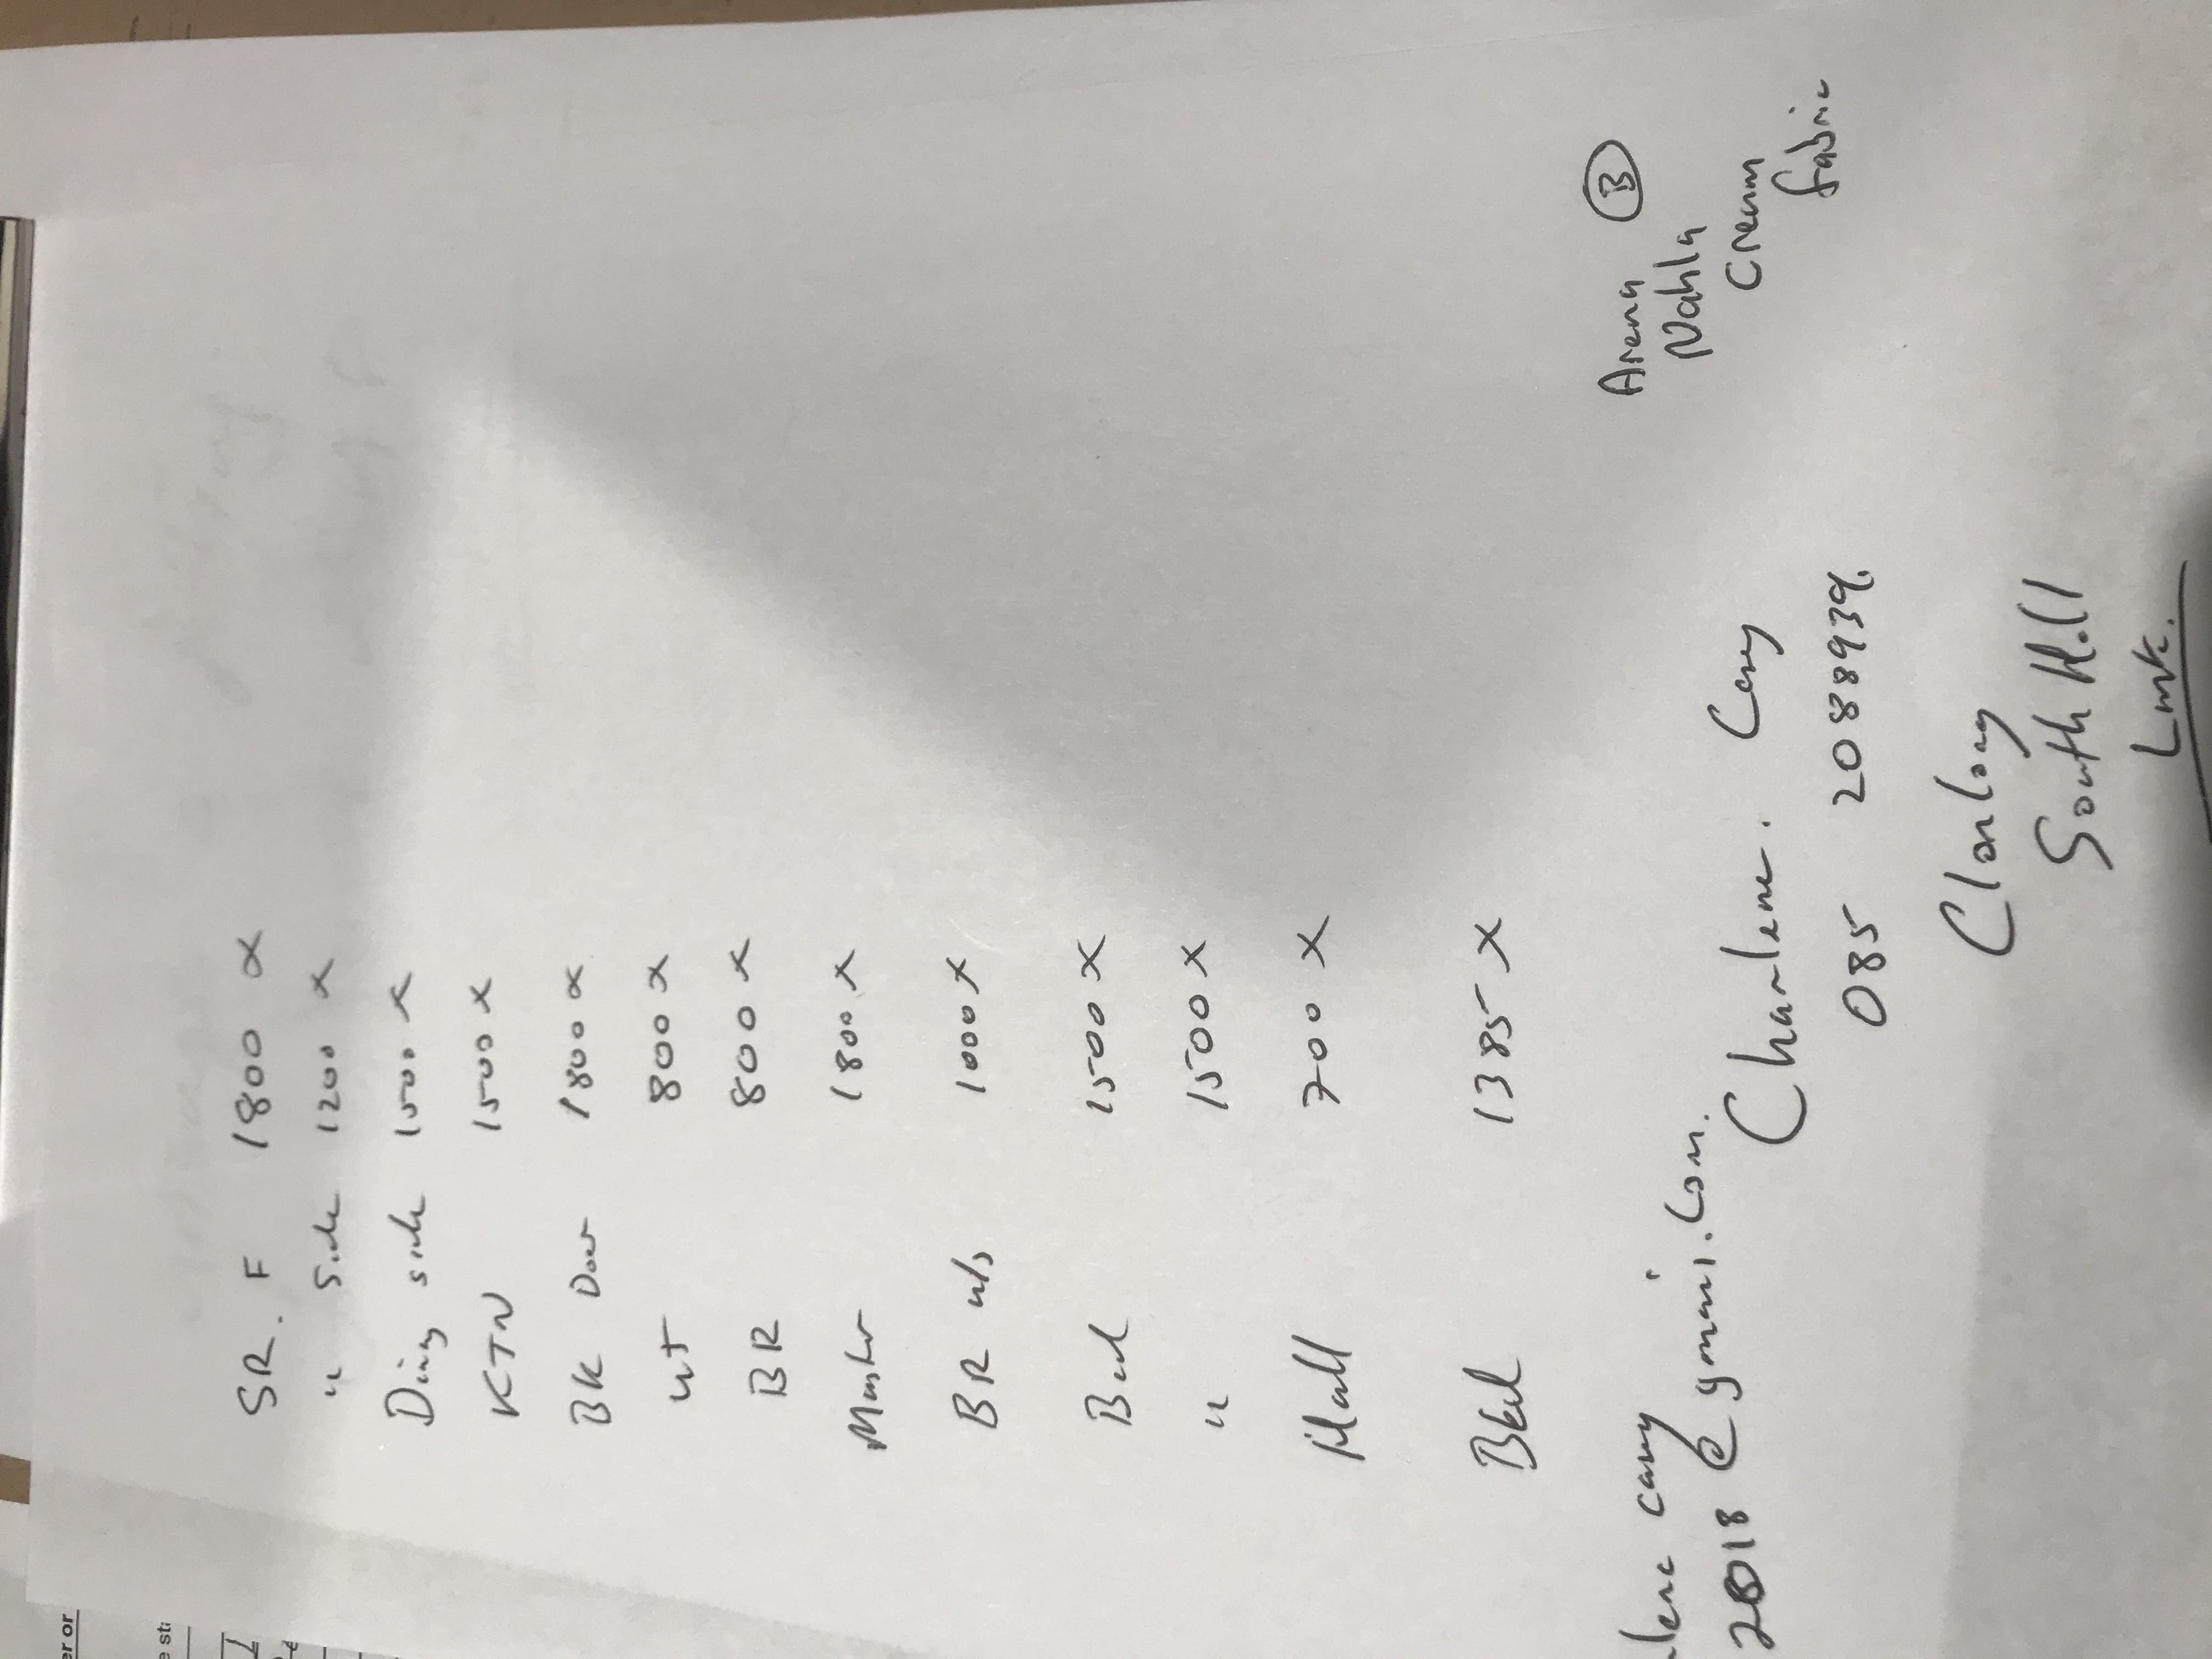 SR. F 1800 x
" Side 1200 x
Ding side 1500 x
KTN 1500 x
BK Door 1800 x
ut 800 x
BR 800 x
Master 1800 x
BR u/s 1000 x
Bed 1500 x
" 1500 x
Hall 700 x
Bed 1385 x
Arena B
Nahla
Cream
fabric
lene cary
2018 @ gmail.com.
Charlene. Cary
085 2088939.
Clonlong
South Hill
Lmk.
er or
e sta